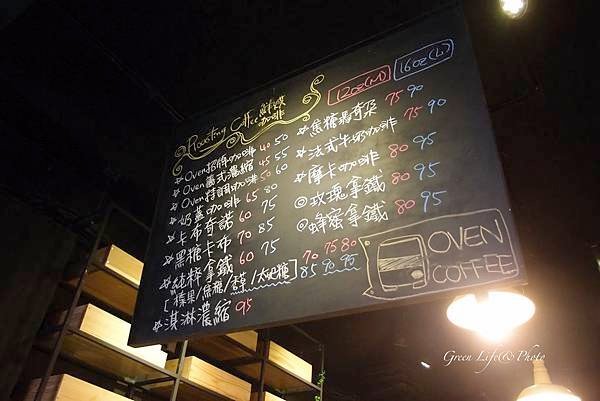 Roasting Coffee 鮮煮咖啡
12oz(M) 16oz(L)
☆ Oven招牌咖啡 40 50
☆ Oven義式濃縮 45 55
☆ Oven特調咖啡 50 60
☆ 奶蓋咖啡 65 80
☆ 卡布奇諾 60 75
☆ 黑糖卡布 70 85
☆ 純粹拿鐵 60 75
[榛果/焦糖/太妃糖] 70 75 80
85 90 95
☆ 淇淋濃縮 95
☆ 焦糖瑪奇朵 75 90
☆ 法式牛奶咖啡 75 90
☆ 摩卡咖啡 80 95
◎ 玫瑰拿鐵 80 95
◎ 蜂蜜拿鐵 80 95
OVEN
COFFEE
Green Life(& Photo